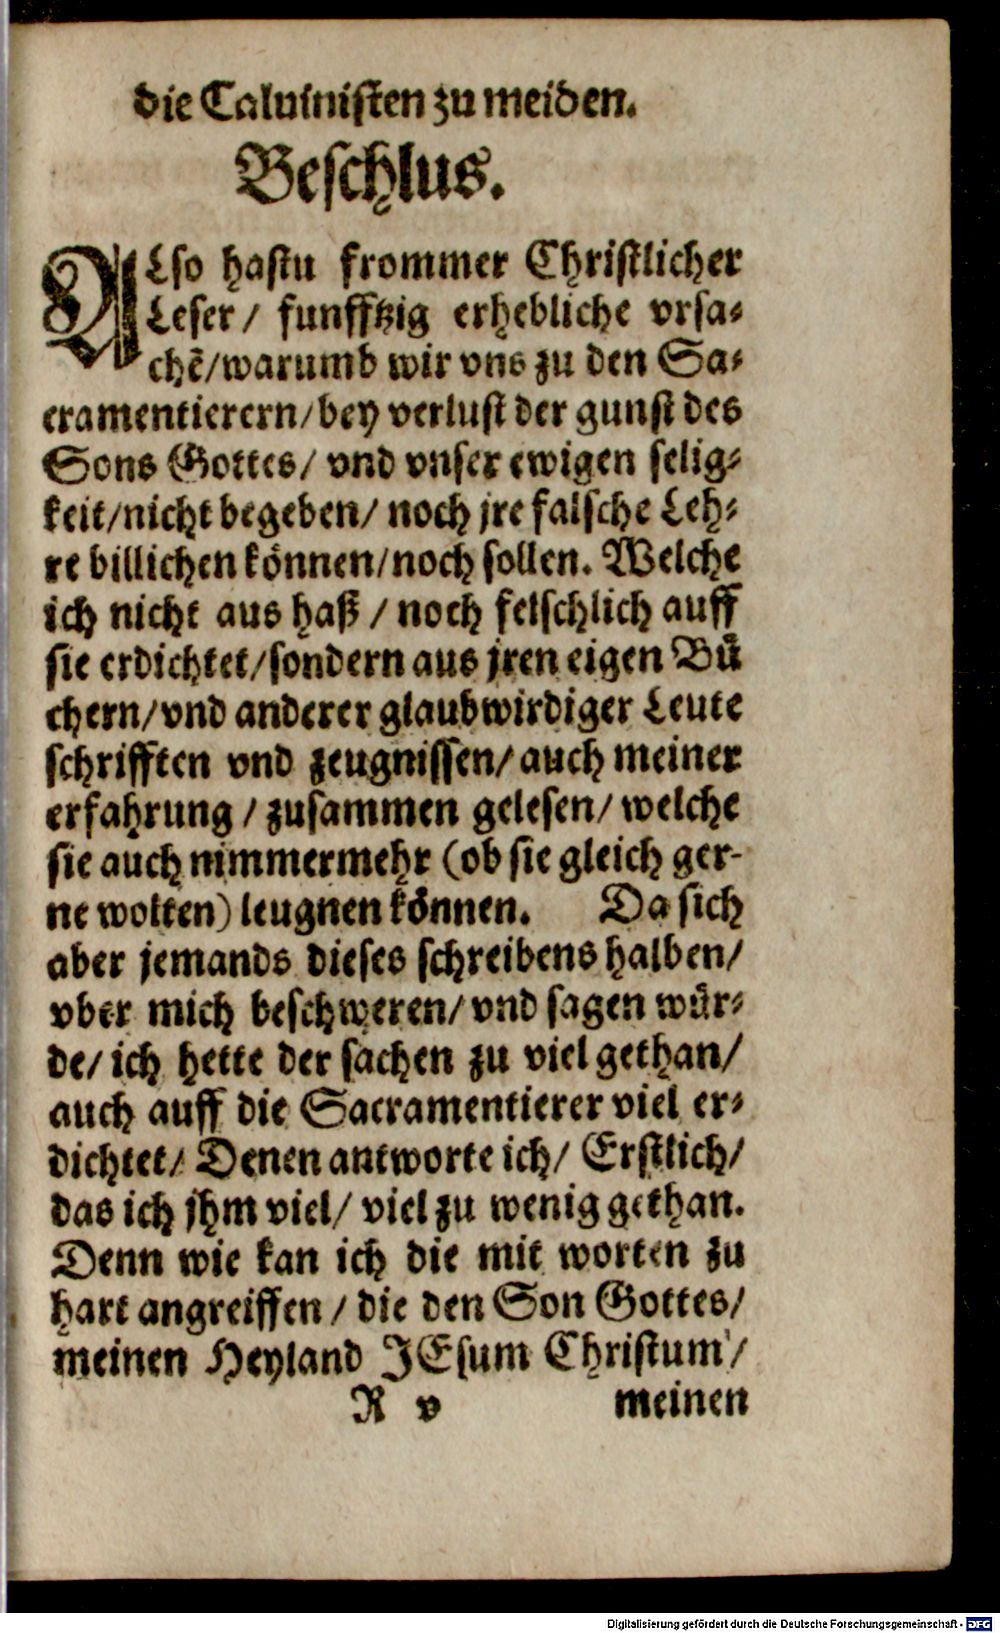 die Caluinisten zu meiden.
Beschlus.
ALso hastu frommer Christlicher
Leser/ funfftzig erhebliche vrsa-
chē/warumb wir vns zu den Sa-
cramentierern/bey verlust der gunst des
Sons Gottes/ vnd vnser ewigen selig-
keit/nicht begeben/ noch jre falsche Leh-
re billichen können/noch sollen. Welche
ich nicht aus haß / noch felschlich auff
sie erdichtet/sondern aus jren eigen Bü
chern/vnd anderer glaubwirdiger Leute
schrifften vnd zeugnissen/ auch meiner
erfahrung / zusammen gelesen/ welche
sie auch nimmermehr (ob sie gleich ger-
ne wolten) leugnen können. Da sich
aber jemands dieses schreibens halben/
vber mich beschweren/ vnd sagen wür-
de/ ich hette der sachen zu viel gethan/
auch auff die Sacramentierer viel er-
dichtet/ Denen antworte ich/ Erstlich/
das ich jhm viel/ viel zu wenig gethan.
Denn wie kan ich die mit worten zu
hart angreiffen / die den Son Gottes/
meinen Heyland JEsum Christum/
R v meinen
Digitalisierung gefördert durch die Deutsche Forschungsgemeinschaft - DFG